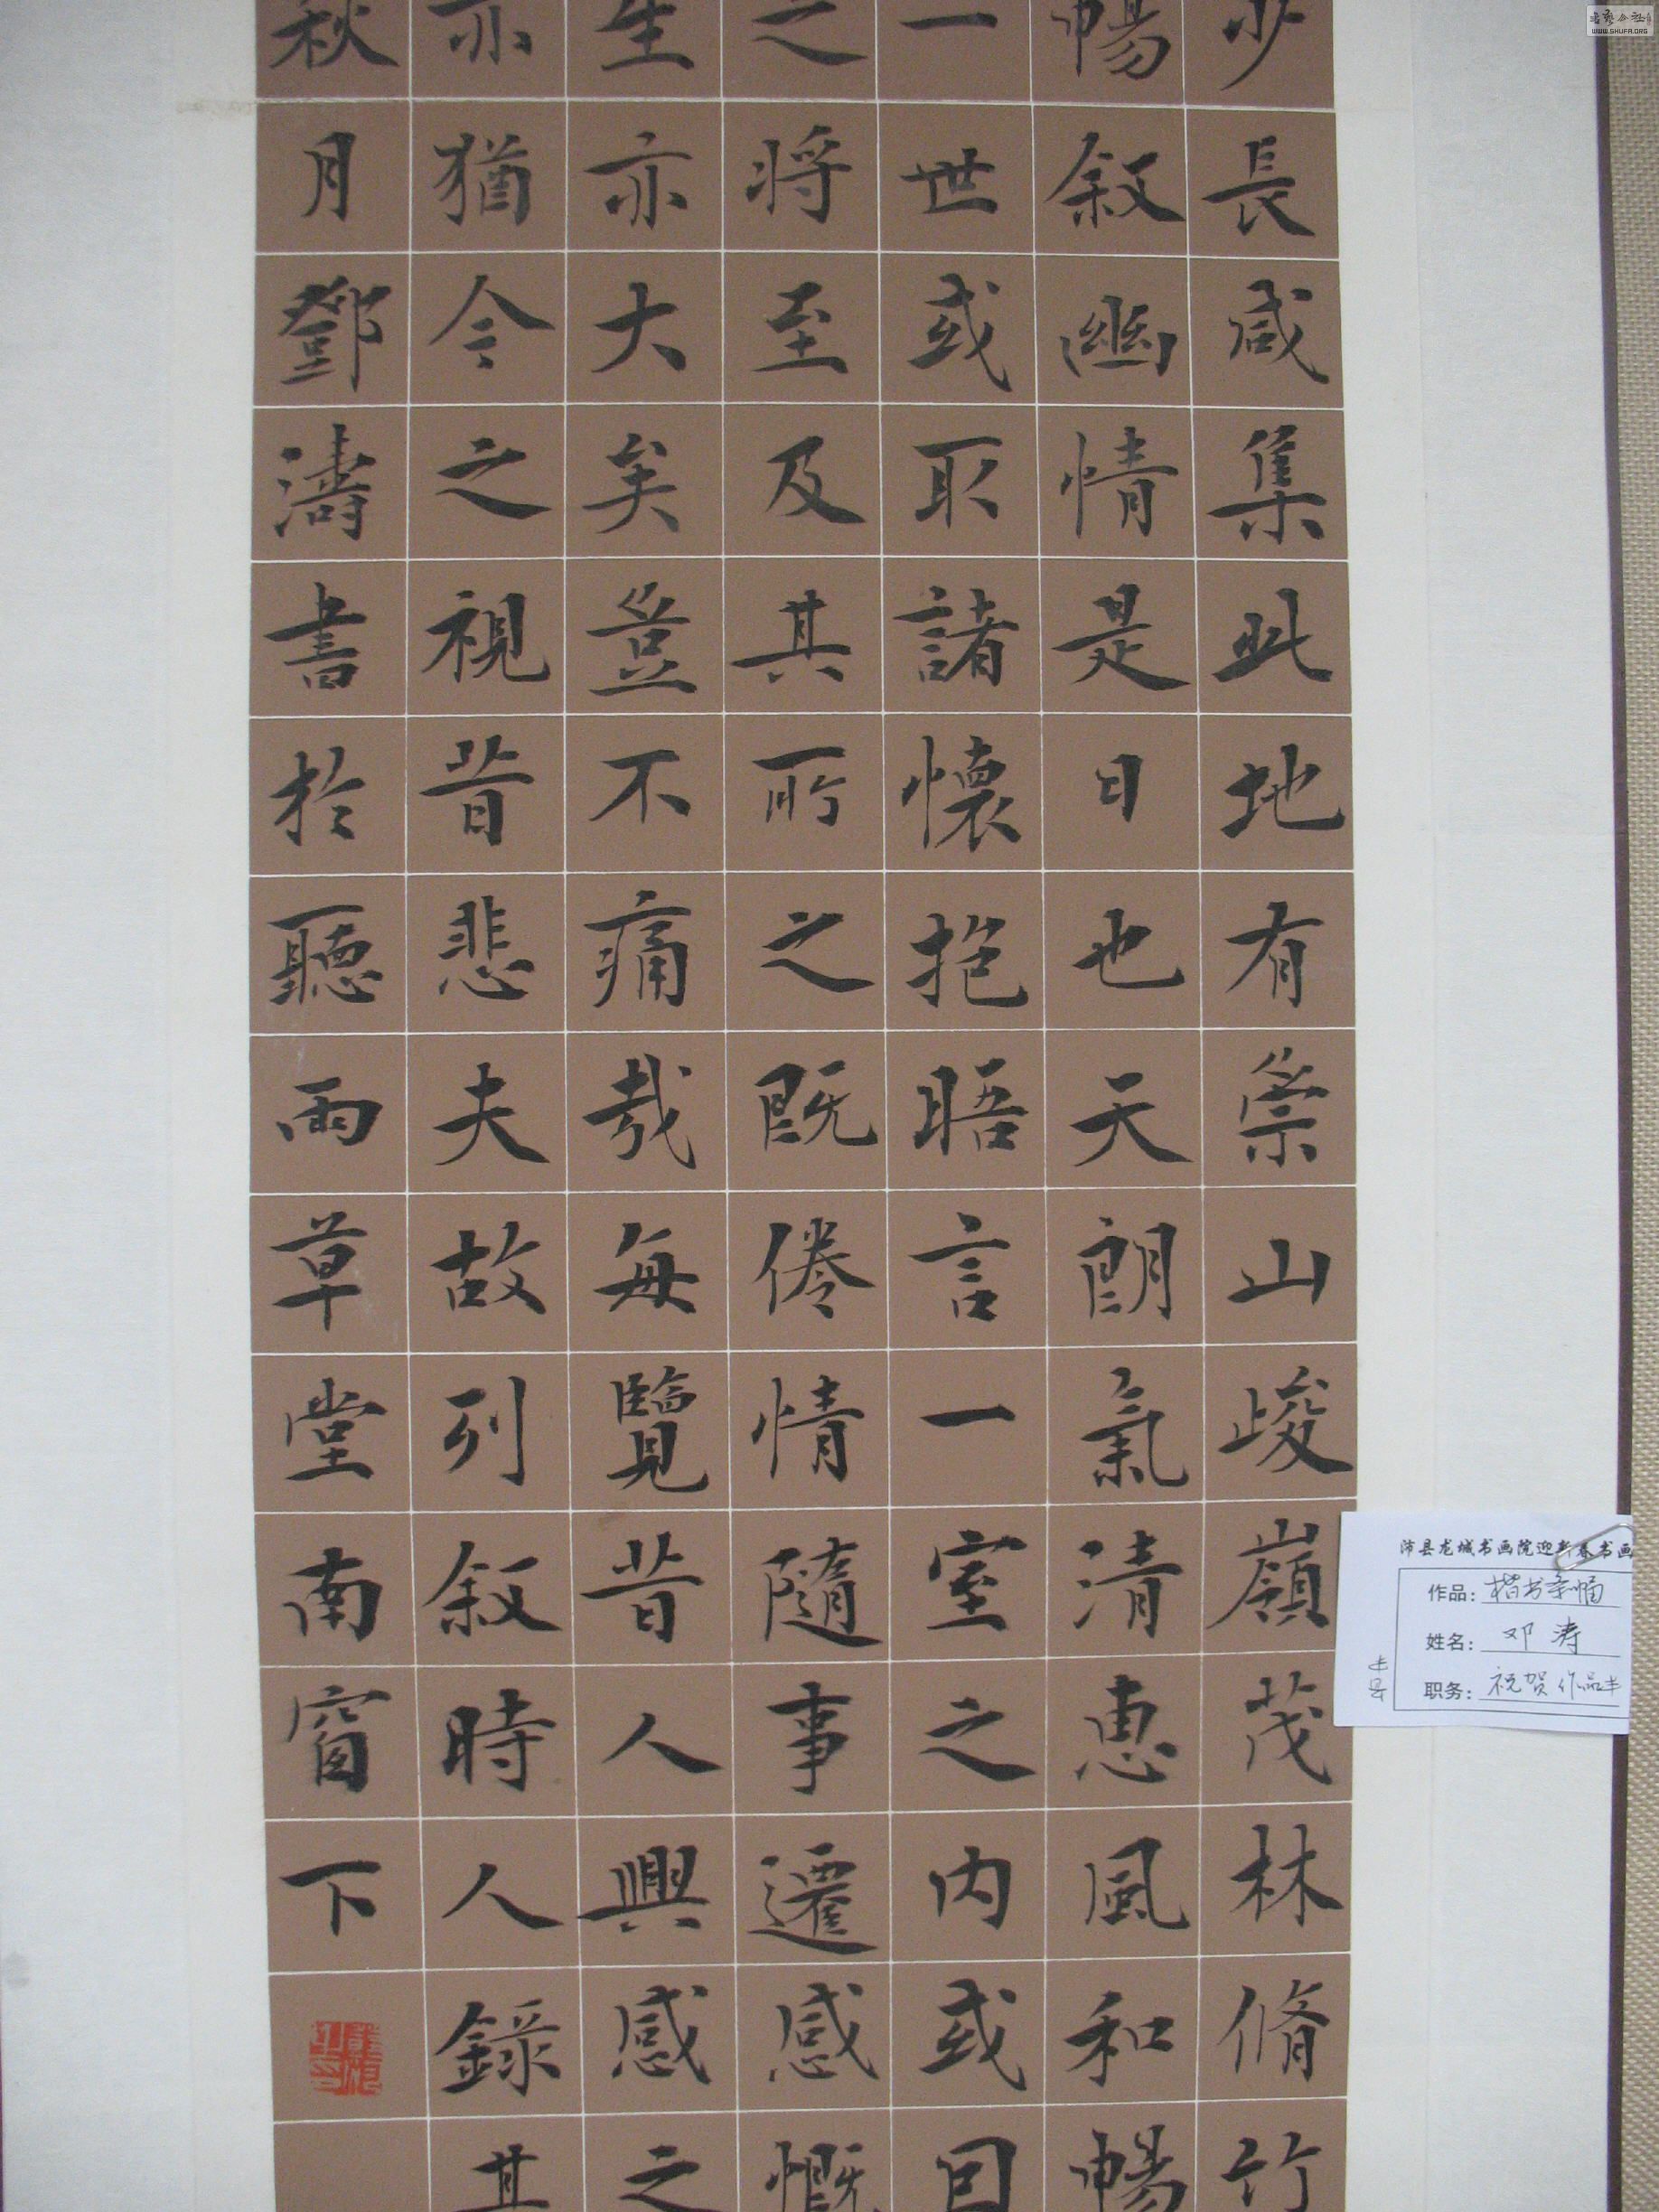 少長咸集此地有崇山峻嶺茂林脩竹
暢叙幽情是日也天朗氣清惠風和暢
一世或取諸懷抱晤言一室之内或因
之將至及其所之既倦情隨事遷感慨
生亦大矣豈不痛哉每覽昔人興感之
亦猶今之視昔悲夫故列叙時人錄其
秋月鄧濤書於聽雨草堂南窗下
沛县龙城书画院迎新春书画
作品：楷书条幅
姓名：邓涛
职务：祝贺作品
丰县
WWW.SHUFA.ORG